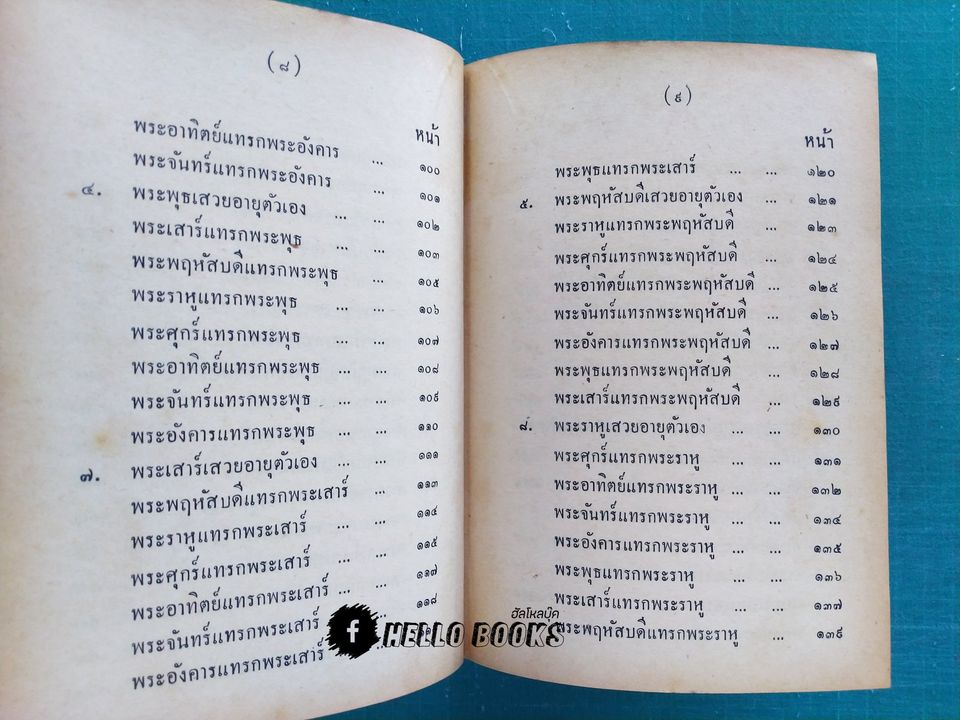 (๘)
หน้า
พระอาทิตย์แทรกพระอังคาร ... ๑๐๐
พระจันทร์แทรกพระอังคาร ... ๑๐๑
๔. พระพุธเสวยอายุตัวเอง ... ... ๑๐๒
พระเสาร์แทรกพระพุธ ... ... ๑๐๓
พระพฤหัสบดีแทรกพระพุธ ... ๑๐๕
พระราหูแทรกพระพุธ ... ... ๑๐๖
พระศุกร์แทรกพระพุธ ... ... ๑๐๗
พระอาทิตย์แทรกพระพุธ ... ... ๑๐๘
พระจันทร์แทรกพระพุธ ... ... ๑๐๙
พระอังคารแทรกพระพุธ ... ... ๑๑๐
๗. พระเสาร์เสวยอายุตัวเอง ... ... ๑๑๑
พระพฤหัสบดีแทรกพระเสาร์ ... ๑๑๓
พระราหูแทรกพระเสาร์ ... ... ๑๑๔
พระศุกร์แทรกพระเสาร์ ... ... ๑๑๕
พระอาทิตย์แทรกพระเสาร์ ... ... ๑๑๗
พระจันทร์แทรกพระเสาร์ ๑๑๘
พระอังคารแทรกพระเสาร์
(๙)
หน้า
พระพุธแทรกพระเสาร์ ... ... ๑๒๐
๕. พระพฤหัสบดีเสวยอายุตัวเอง ... ๑๒๑
พระราหูแทรกพระพฤหัสบดี ... ๑๒๓
พระศุกร์แทรกพระพฤหัสบดี ... ๑๒๔
พระอาทิตย์แทรกพระพฤหัสบดี ... ๑๒๕
พระจันทร์แทรกพระพฤหัสบดี ... ๑๒๖
พระอังคารแทรกพระพฤหัสบดี ... ๑๒๗
พระพุธแทรกพระพฤหัสบดี ... ๑๒๘
พระเสาร์แทรกพระพฤหัสบดี ... ๑๒๙
๘. พระราหูเสวยอายุตัวเอง ... ... ๑๓๐
พระศุกร์แทรกพระราหู ... ... ๑๓๑
พระอาทิตย์แทรกพระราหู ... ... ๑๓๒
พระจันทร์แทรกพระราหู ... ... ๑๓๔
พระอังคารแทรกพระราหู ... ... ๑๓๕
พระพุธแทรกพระราหู ... ... ๑๓๖
พระเสาร์แทรกพระราหู ... ... ๑๓๗
พระพฤหัสบดีแทรกพระราหู ... ๑๓๙
ฮัลโหลบุ๊ค
f HELLO BOOKS